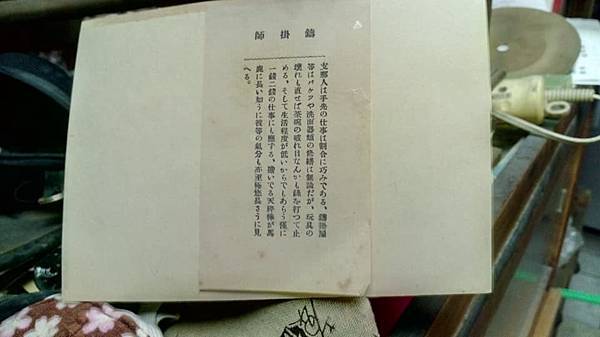 師掛鑄
支那人は手先の仕事は割合に巧みである、鑄掛屋
等はバケツや洗面器類の修繕は無論だが、玩具の
壊れも直せば茶碗の破れ目なんかも鎹を打つて止
める。そして生活程度が低いからでもあらう僅に
一錢二錢の仕事にも應する、擔いでる天秤棒が馬
鹿に長い如うに彼等の氣分も亦至極悠長さうに見
へる。